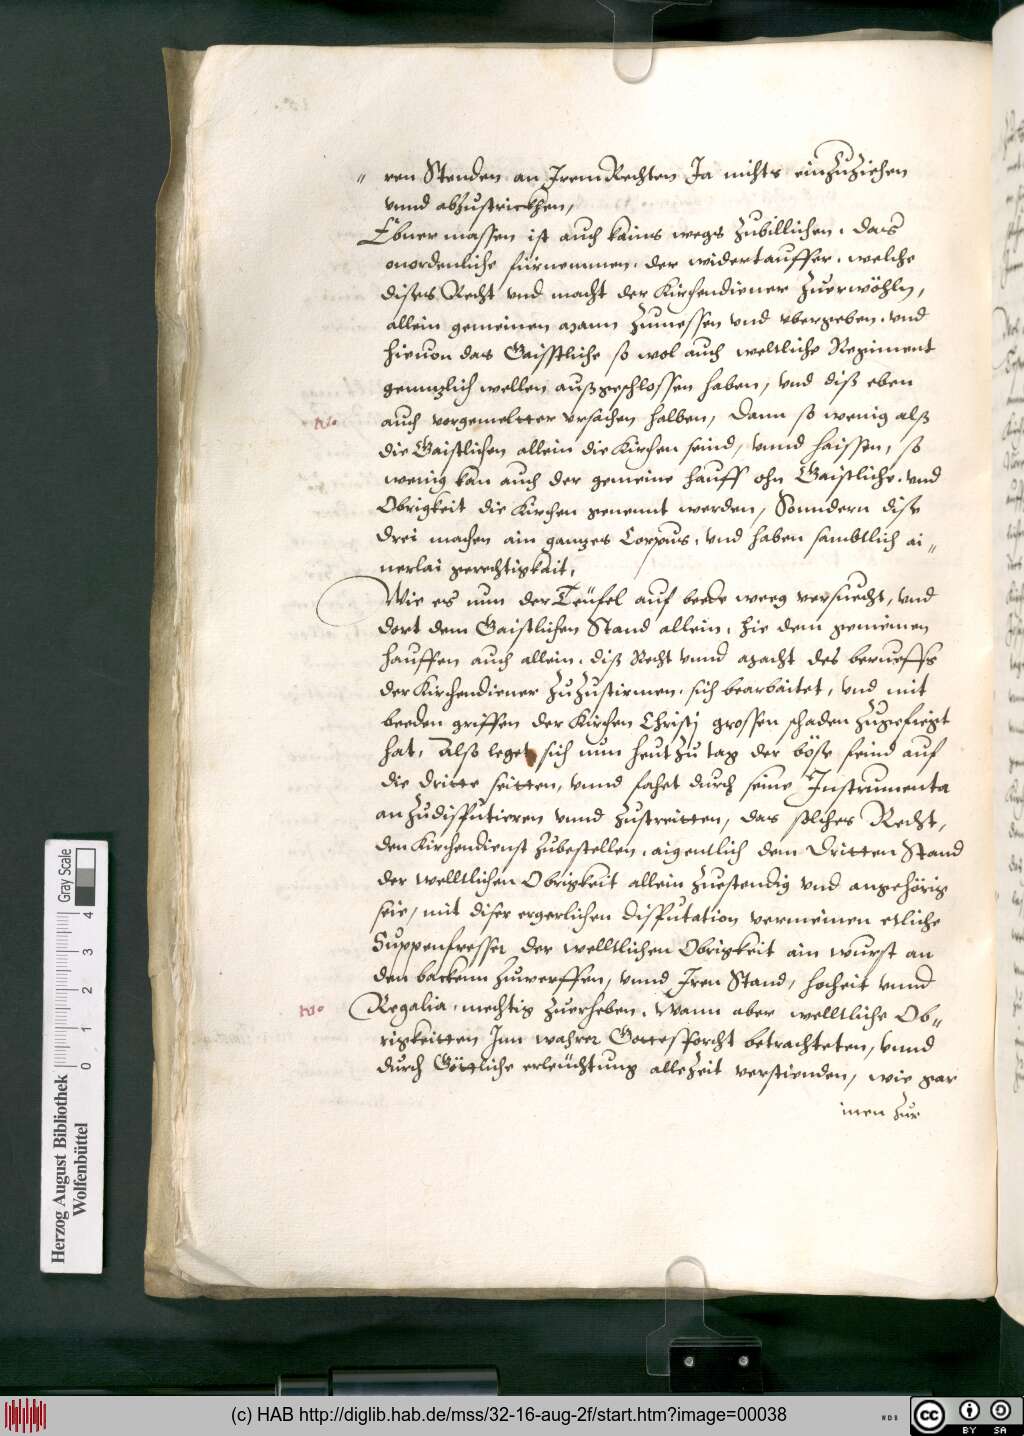 ren Stenden an Jrem Rechten Ja nichts einzuziehen
vnnd abzustrickhen,
Ebnermassen ist auch kains wegs zubillichen. das
onordenliche fürnemmen. der widertauffer. welche
dises Recht vnd macht der Kirchendiener zuerwöhln,
allein gemeinen mann zumessen vnd vbergeben. vnd
hieuon das Gaisstliche so wol auch weltliche Regiment
genntzlich wellen außgeschlossen haben, vnd diß eben
auch vorgemeltter vrsachen halben, Dann so wenig alß
die Gaistlichen allein die Kirchen seind, vnnd haissen, so
wenig kan auch der gemeine hauff ohn Gaistliche. vnd
Obrigkeit die Kirchen genennt werden, Sonndern dise
drei machen ain gantzes Corpus. vnd haben sambtlich ai„
nerlai gerechtigkait,
Wie es nun der Teüfel auf beede weeg versuecht, vnd
dort dem Gaistlichen Stand allein. hie dem gemeinen
hauffen auch allein. diß Recht vnnd macht des berueffs
der Kirchendiener zuzustirmen. sich bearbaitet, vnd mit
beeden griffen der Kirchen Christj grossen schaden zugefiegt
hat, Also leget sich nun heut zu tag der böse feind auf
die dritte seitten, vnnd fahet durch seine Instrumenta
an zudisputieren vnnd zustreitten, das solches Recht,
den Kirchendienst zubestellen. aigentlich dem Dritten Stand
der welltlichen Obrigkeit allein zuestendig vnd angehörig
seie, mit diser ergerlichen disputation vermeinen etliche
Suppenfresser der welltlichen Obrigkeit ain wurst an
den backenn zuwerffen, vnnd Jren Stand, hocheit vnnd
Regalia. mechtig zuerheben. Wann aber welltliche Ob„
rigkeitten Jnn wahrer Gottesforcht betrachteten, vnnd
durch Göttliche erleüchtung allezeit verstienden, wie gar
inen zur
Gray Scale
0 1 2 3 4
Herzog August Bibliothek
Wolfenbüttel
(c) HAB http://diglib.hab.de/mss/32-16-aug-2f/start.htm?image=00038
WDB
cc BY SA